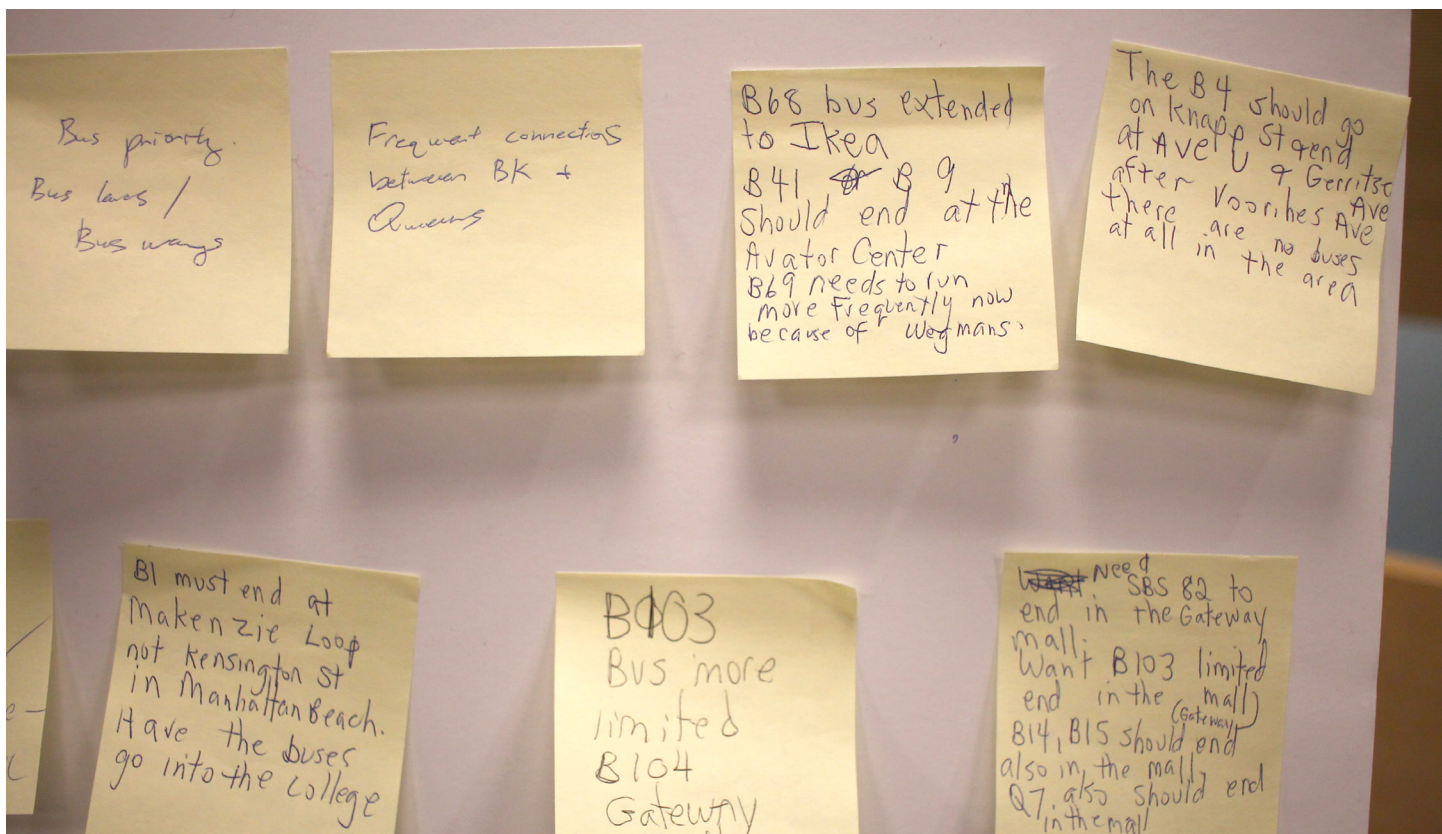 Bus priority.
Bus lanes /
Bus ways
Frequent connections
between BK +
Queens
B68 bus extended
to Ikea
B41 B9
should end at the
Avator Center
B69 needs to run
more Frequently now
because of Wegmans.
The B4 should go
on Knapp St & end
at Ave U & Gerritse
Ave
after Voorihes Ave
there are no buses
at all in the area
B1 must end at
Makenzie Loop
not Kensington St
in Manhattan Beach.
Have the buses
go into the college
B103
Bus more
limited
B104
Gateway
Need SBS 82 to
end in the Gateway
mall.
Want B103 limited
end in the mall
(Gateway)
B14, B15 should end
also in the mall,
Q7. also should end
in the mall